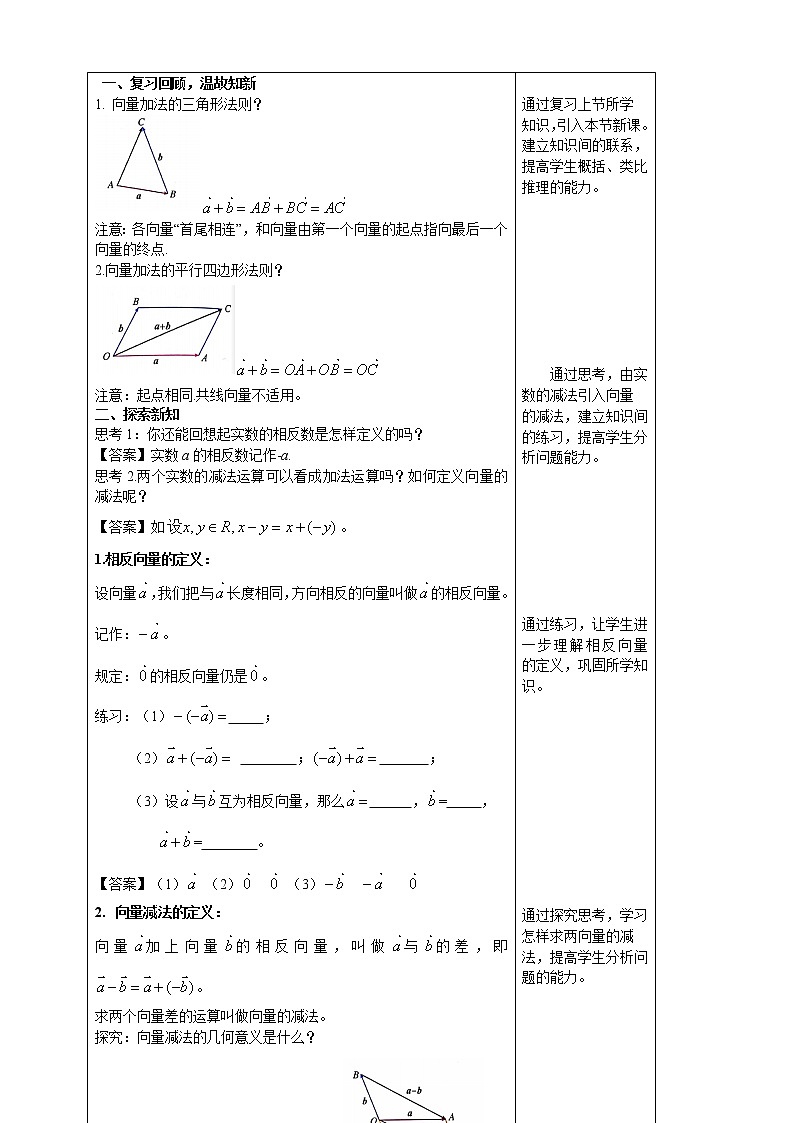 一、复习回顾，温故知新
1. 向量加法的三角形法则？
C
b
A
a
B
a + b = AB + BC = AC
注意：各向量“首尾相连”，和向量由第一个向量的起点指向最后一个
向量的终点.
2.向量加法的平行四边形法则？
B
C
b
a+b
O
a
A
a + b = OA + OB = OC
注意：起点相同.共线向量不适用。
二、探索新知
思考 1：你还能回想起实数的相反数是怎样定义的吗？
【答案】实数 a 的相反数记作-a.
思考 2.两个实数的减法运算可以看成加法运算吗？如何定义向量的
减法呢？
【答案】如设x, y ∈ R, x − y = x + (− y) 。
1.相反向量的定义：
设向量a，我们把与a长度相同，方向相反的向量叫做a的相反向量。
记作：− a 。
规定：0的相反向量仍是0 。
练习：（1）− (−a) = _____；
（2）a + (−a) = ________；(−a) + a = _______；
（3）设a与b互为相反向量，那么a = ______，b =_____，
a + b =________。
【答案】（1）a （2）0 0 （3）− b − a 0
2. 向量减法的定义：
向量 a加上向量 b的相反向量，叫做 a与 b的差，即
a − b = a + (−b) 。
求两个向量差的运算叫做向量的减法。
探究：向量减法的几何意义是什么？
B
a-b
b
a
O
A
通过复习上节所学
知识，引入本节新课。
建立知识间的联系，
提高学生概括、类比
推理的能力。
通过思考，由实
数的减法引入向量
的减法，建立知识间
的练习，提高学生分
析问题能力。
通过练习，让学生进
一步理解相反向量
的定义，巩固所学知
识。
通过探究思考，学习
怎样求两向量的减
法，提高学生分析问
题的能力。